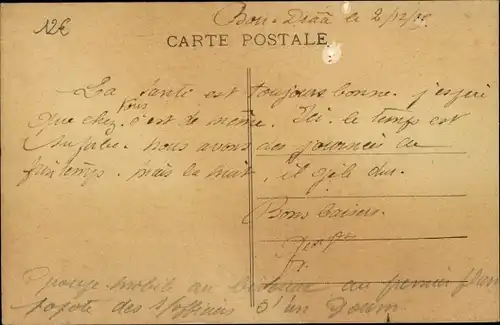 12€
Bou-Drâa le 2/12/08
CARTE POSTALE
La santé est toujours bonne. j'espère
que chez vous c'est de même. Ici le temps est
superbe. nous avons des journées de
printemps. mais la nuit, il gèle dur.
Bons baisers.
groupe mobile au au premier plan
popote des s/officiers d'un Goum